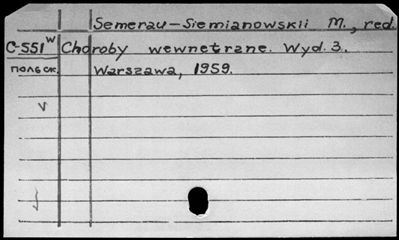 Semerau-Siemianowskii M., red.
C-551w Choroby wewnetrzne. Wyd. 3.
польск. Warszawa, 1959.